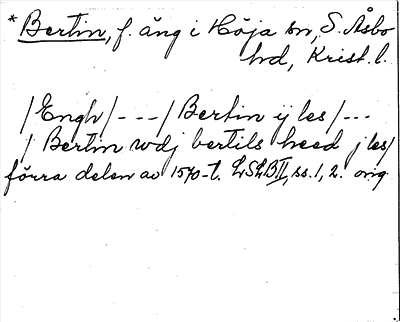 * Bertin, f. äng i Höja sn, S. Åsbo
hd, Krist. l.
/Engh/---/Bertin ij les/---
/Bertin wdj bertils heed j les/
förra delen av 1570-t. LSLB II, ss. 1, 2. orig